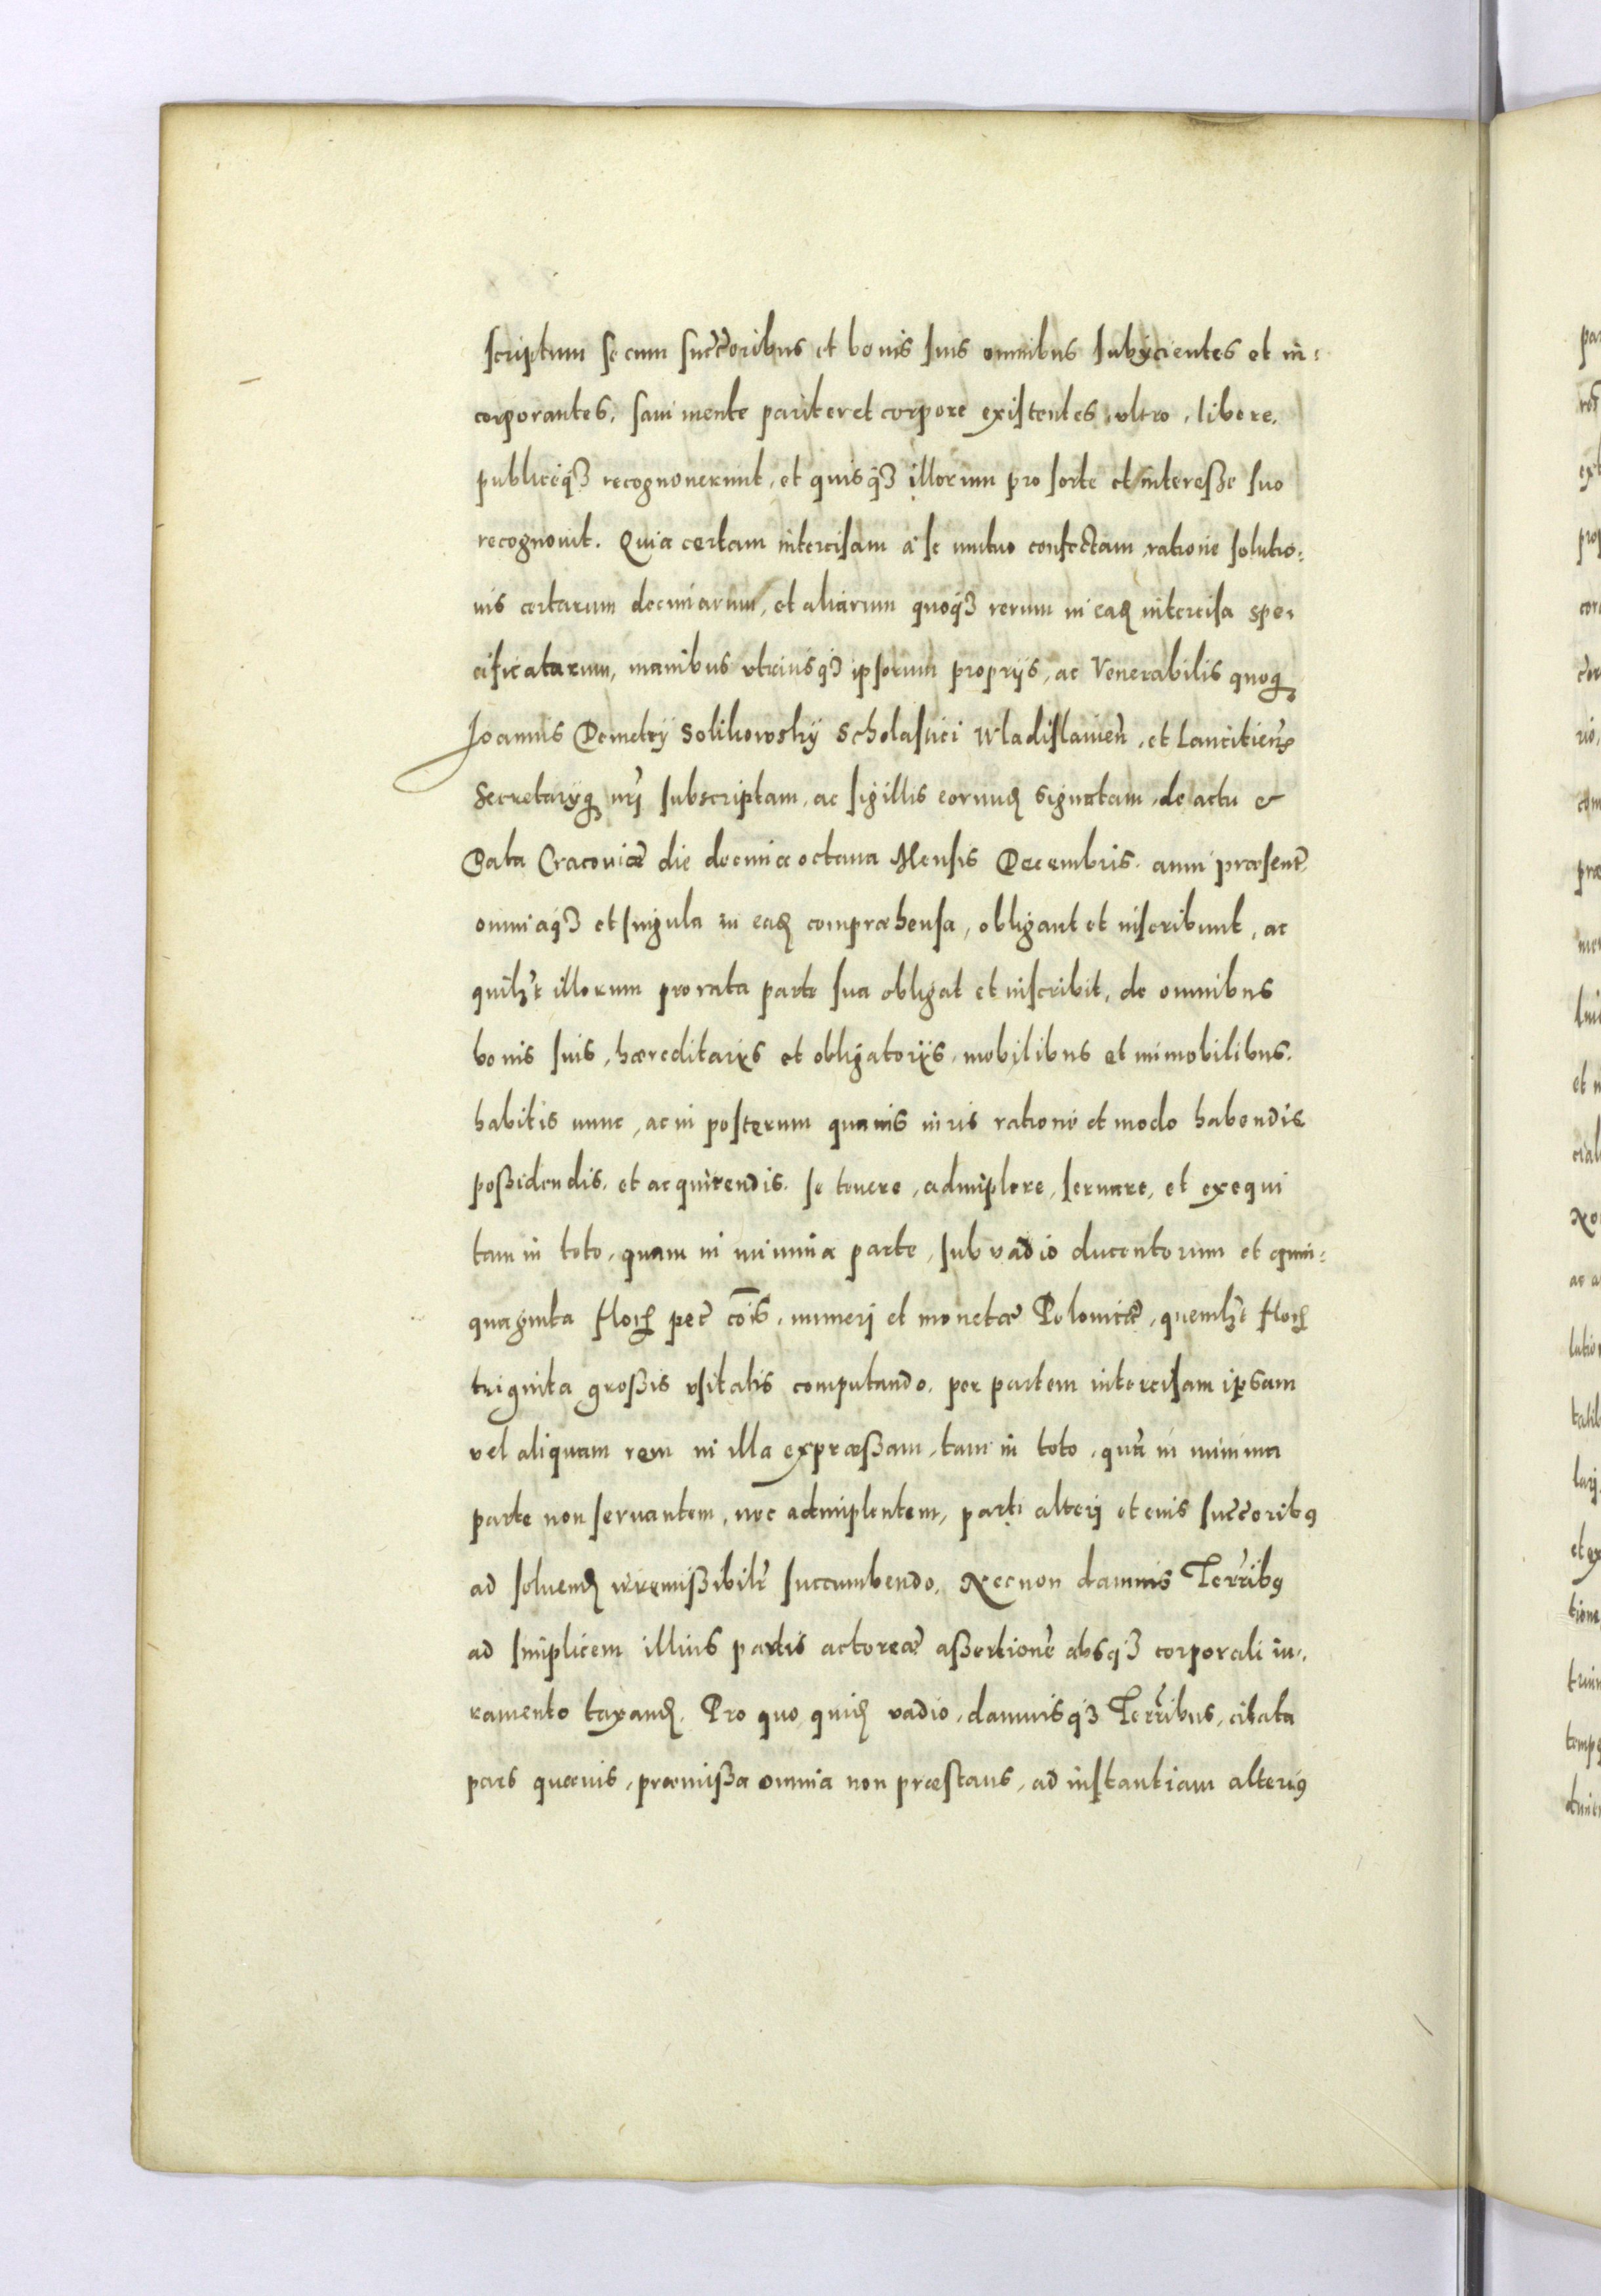 scriptum se cum succōribus et bonis suis omnibus subÿcientes et in=
corporantes, sani mente pariter et corpore existentes, ultro, libere,
publicéqꝫ recognouerunt, et quisqꝫ illorum pro sorte et interesse suo
recognouit. Quia certam intercisam à se mutuo confectam, ratione solutio=
nis certarum decimarum, et aliarum quoqꝫ rerum in eaɋ intercisa spe=
cificatarum, manibus vtriusqꝫ ipsorum proprÿs, ac Venerabilis quoq
Joannis Demetrÿ Solikowskÿ Scholastici Wladislauien̄, et Lancicien̄
Secretarÿq nr̄j subscriptam, ac sigillis eorunɋ signatam, de actu et
Data Cracouiæ die decima octaua Mensis Decembris anni præsent̄.
omniaqꝫ et singula in eaɋ compræhensa, obligant et inscribunt, ac
quilꝫt illorum pro rata parte sua obligat et inscribit, de omnibus
bonis suis, hæreditarÿs et obligatorÿs, mobilibus et immobilibus,
habitis nunc, ac in posterum quauis iuris ratione et modo habendis
possidendis, et acquirendis. se tenere, adimplere, seruare, et exequi
tam in toto, quam in minima parte, sub vadio ducentorum et quin=
quaginta floɋ pec̄ cōis, numerj et monetæ Polonicæ, quemlꝫt floɋ
triginta grossis vsitatis computando. per partem intercisam ipsam
vel aliquam rem in illa expræssam, tam in toto, quā in minima
parte non seruantem, nec adimplentem, parti alterj et eius succōribꝯ
ad soluenɋ irremissibilr̄ succumbendo, Necnon damnis Terr̄ibꝯ
ad simplicem illius partis actoreæ assertionē absqꝫ corporali iu=
ramento taxanɋ. Pro quo quiɋ vadio, damnisqꝫ Terr̄ibus, citata
pars quæuis, præmissa omnia non præstans, ad instantiam alteriꝯ